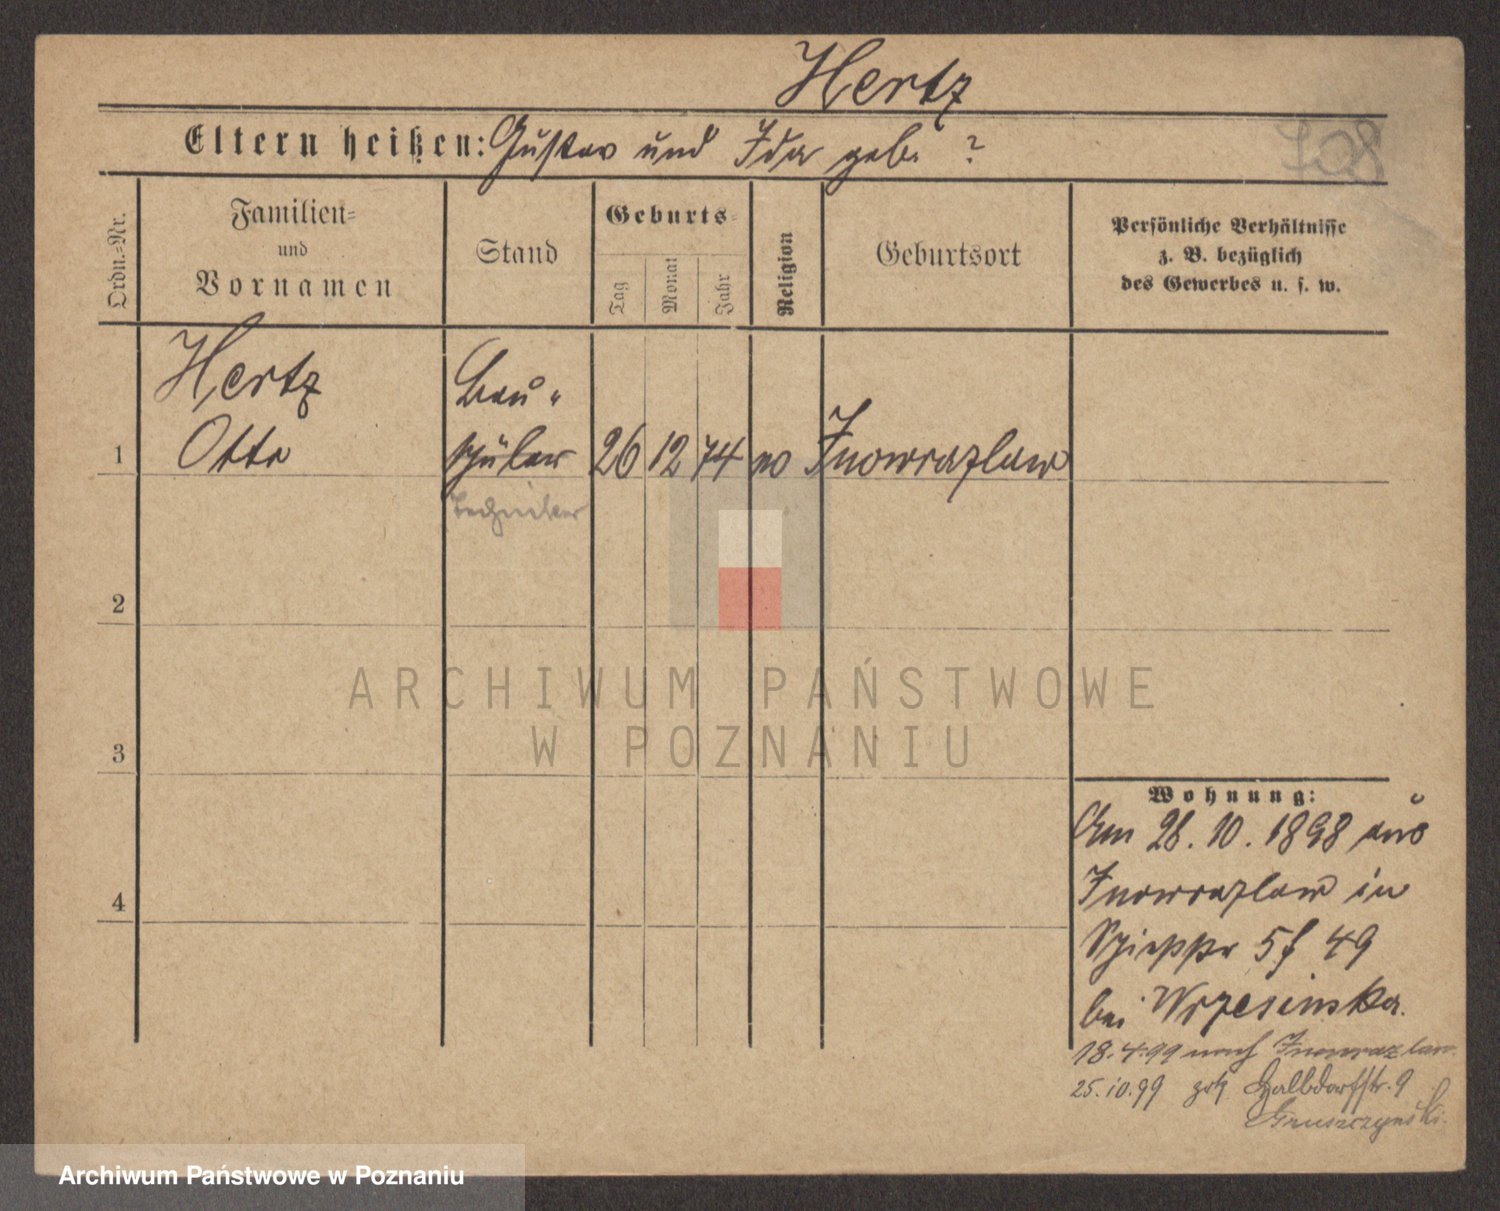 Hertz
Eltern heißen: Gustav und Ida geb. ?
708
Ordn.=Nr.
Familien=
und
Vornamen
Stand
Geburts=
Tag
Monat
Jahr
Religion
Geburtsort
Persönliche Verhältnisse
z. B. bezüglich
des Gewerbes u. s. w.
Hertz
Otto
Bau-
schüler
Techniker
1
26 12 74
Inowrazlaw
2
3
4
Wohnung:
Am 28. 10. 1898 aus
Inowrazlaw in
49
bei Wrzesinska.
18.4.99 nach Inowrazlaw.
25.10.99 zrk Halbdorfstr. 9
Gruszczynski.
ARCHIWUM PAŃSTWOWE
W POZNANIU
Archiwum Państwowe w Poznaniu